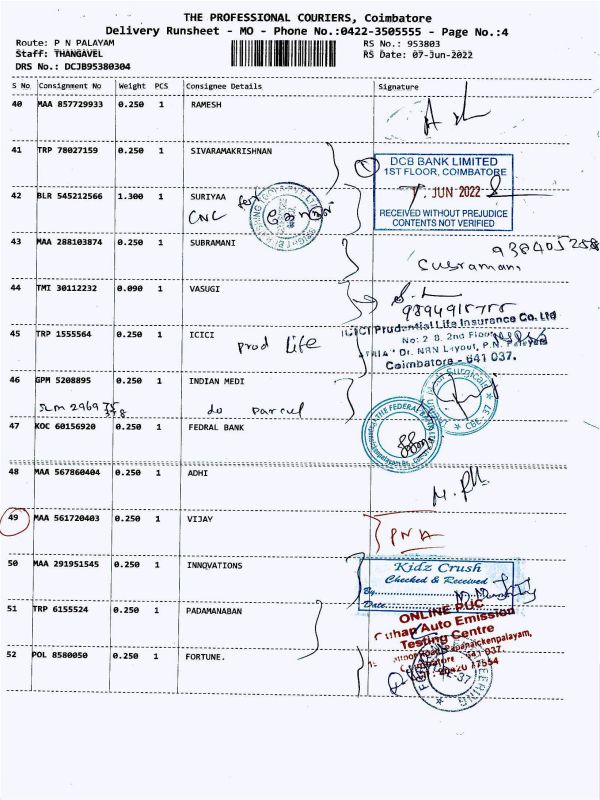 THE PROFESSIONAL COURIERS, Coimbatore
Delivery Runsheet - MO - Phone No.:0422-3505555 - Page No.:4
Route: P N PALAYAM
Staff: THANGAVEL
DRS No.: DCJB95380304
RS No.: 953803
RS Date: 07-Jun-2022
S No Consignment No Weight PCS Consignee Details Signature
40 MAA 857729933 0.250 1 RAMESH
41 TRP 78027159 0.250 1 SIVARAMAKRISHNAN
DCB BANK LIMITED
1ST FLOOR, COIMBATORE
JUN 2022
RECEIVED WITHOUT PREJUDICE
CONTENTS NOT VERIFIED
42 BLR 545212566 1.300 1 SURIYAA
CNC
43 MAA 288103874 0.250 1 SUBRAMANI
Subramani
44 TMI 30112232 0.090 1 VASUGI
45 TRP 1555564 0.250 1 ICICI
prod life
ICICI Prudential Life Insurance Co. Ltd
No: 2 B. 2nd Floor
Dr. NRN Layout, P.N. Palayam
Coimbatore - 641 037.
46 GPM 5208895 0.250 1 INDIAN MEDI
do parcel
47 KOC 60156920 0.250 1 FEDRAL BANK
THE FEDERAL BANK
48 MAA 567860404 0.250 1 ADHI
49 MAA 561720403 0.250 1 VIJAY
PNA
50 MAA 291951545 0.250 1 INNOVATIONS
Kidz Crush
Checked & Received
By
Date
51 TRP 6155524 0.250 1 PADAMANABAN
ONLINE PUC
Auto Emission
Testing Centre
Papanaickenpalayam,
52 POL 8580050 0.250 1 FORTUNE.